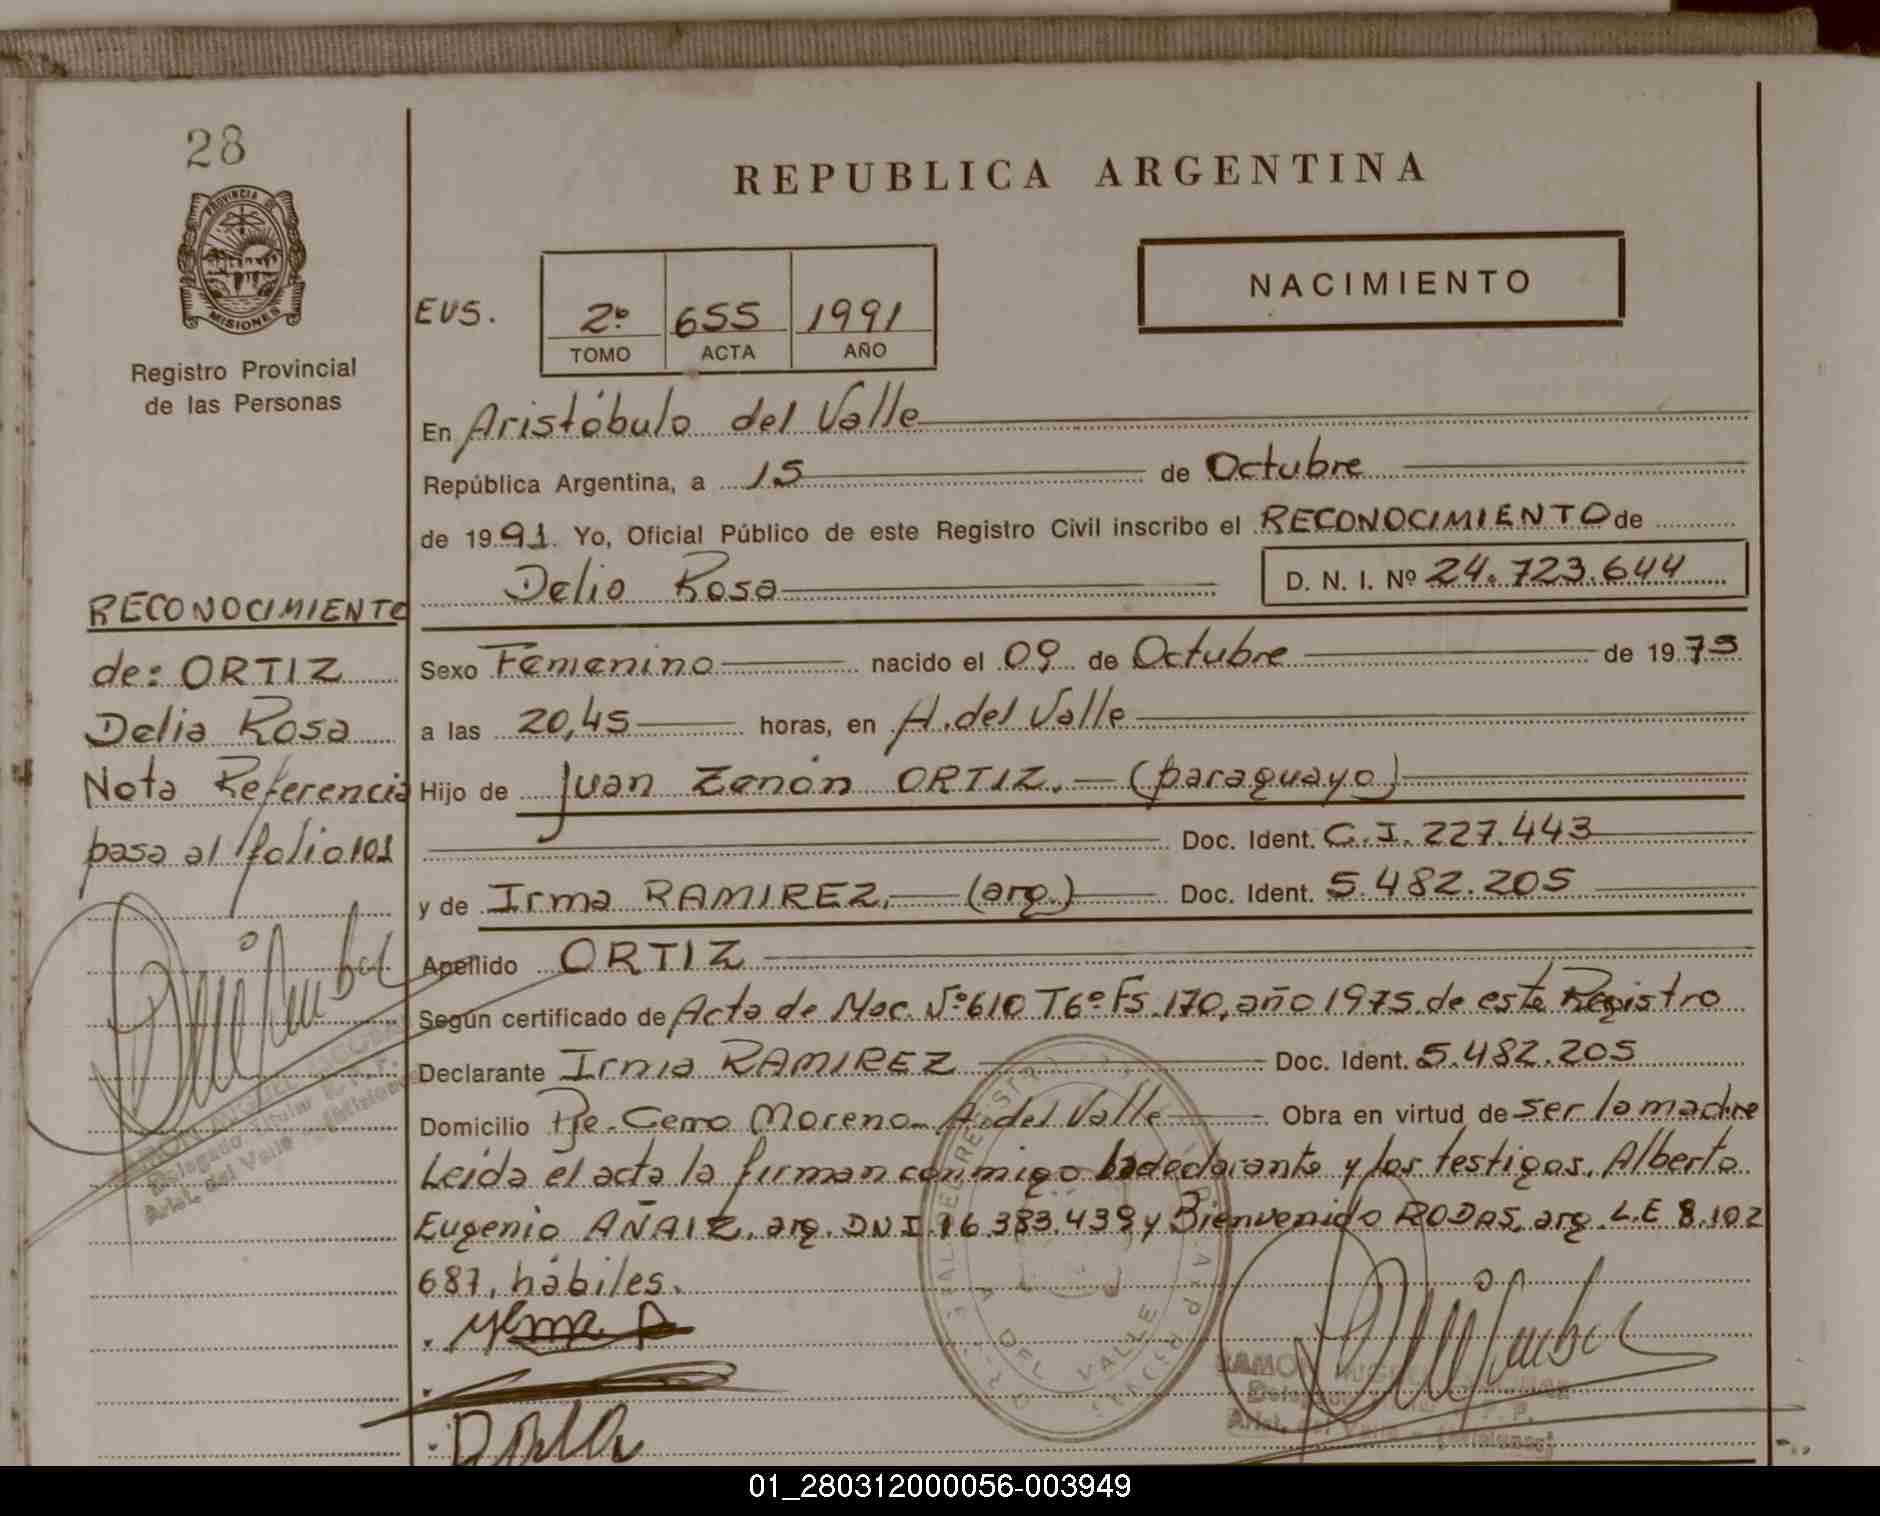 28
REPUBLICA ARGENTINA
PROVINCIA DE
MISIONES
Registro Provincial
de las Personas
EVS.
2º 655 1991
TOMO ACTA AÑO
NACIMIENTO
En Aristóbulo del Valle
República Argentina, a 15 de Octubre
de 1991. Yo, Oficial Público de este Registro Civil inscribo el RECONOCIMIENTO de
Delia Rosa D. N. I. Nº 24.723.644
RECONOCIMIENTO
de: ORTIZ
Delia Rosa
Nota Referencia
pasa al folio 101
Sexo Femenino nacido el 09 de Octubre de 1975
a las 20,45 horas, en A. del Valle
Hijo de Juan Zenón ORTIZ. (paraguayo)
Doc. Ident. C.I. 227.443
y de Irma RAMIREZ. (arg.) Doc. Ident. 5.482.205
Apellido ORTIZ
Según certificado de Acta de Nac. Nº 610 T6º Fs. 170, año 1975 de este Registro
Declarante Irma RAMIREZ Doc. Ident. 5.482.205
Domicilio Pje. Cerro Moreno A. del Valle Obra en virtud de ser la madre
Leída el acta la firman conmigo la declarante y los testigos, Alberto
Eugenio AÑAIZ, arg. DNI 16.383.439 y Bienvenido RODAS, arg. L.E 8.102
687, hábiles.
DEL VALLE
Arist. del Valle - (Misiones)
01_280312000056-003949